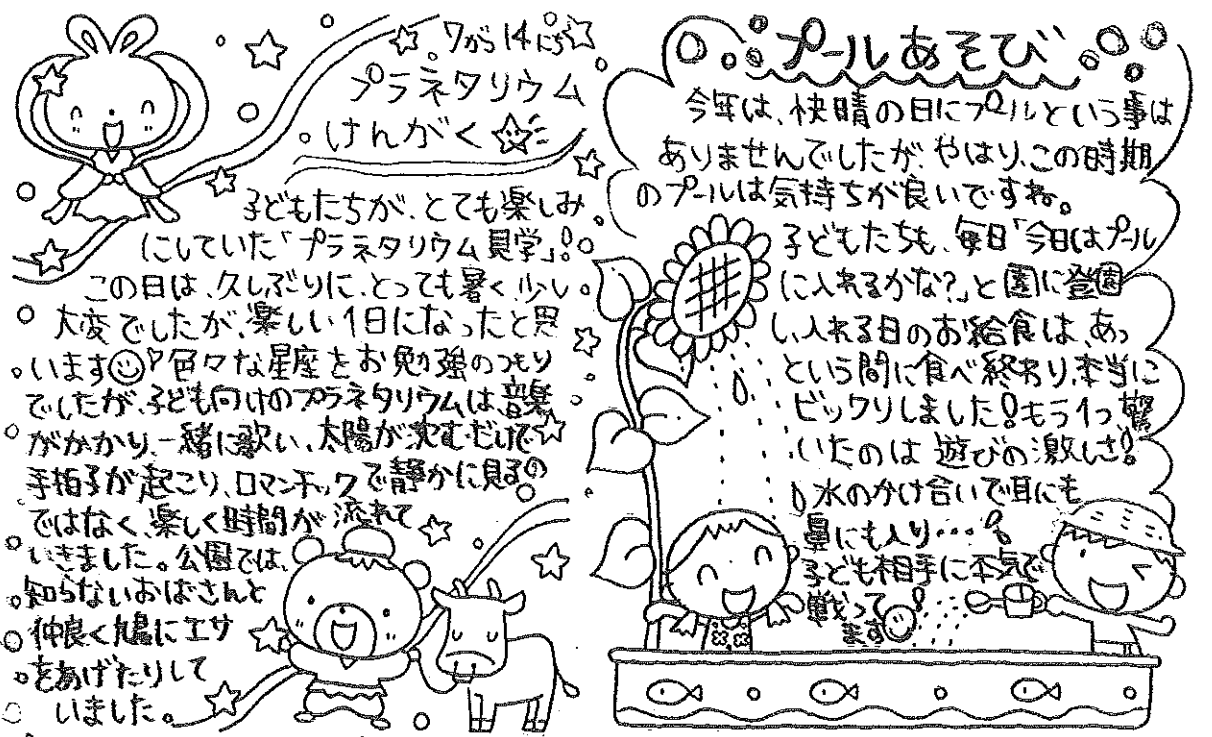 7がつ14にち
プラネタリウム
けんがく
子どもたちが、とても楽しみ
にしていた「プラネタリウム見学」!
この日は、久しぶりに、とっても暑く、少し
大変でしたが、楽しい1日になったと思
います 色々な星座をお勉強のつもり
でしたが、子ども向けのプラネタリウムは、音楽
がかかり、一緒に歌い、太陽が沈むだけで
手拍子が起こり、ロマンチックで静かに見るの
ではなく、楽しく時間が流れて
いきました。公園では、
知らないおばさんと
仲良く鳩にエサ
をあげたりして
いました。
プールあそび
今年は、快晴の日にプールという事は
ありませんでしたが、やはり、この時期
のプールは気持ちが良いですね。
子どもたちも、毎日「今日はプール
に入れるかな?」と園に登園
し、入れる日のお給食は、あっ
という間に食べ終わり、本当に
ビックリしました!もう1つ驚
いたのは遊びの激しさ!
水のかけ合いで耳にも
鼻にも入り…!
子ども相手に本気で
戦って
ます!